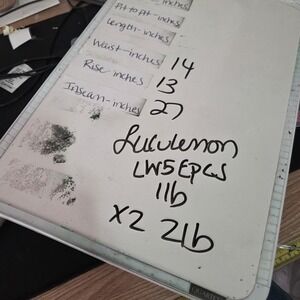 -inches
Pit to Pit-inches
Length-inches
Waist-inches 14
Rise-inches 13
Inseam-inches 27
Lululemon
LW5EPCS
1lb
X2 2lb